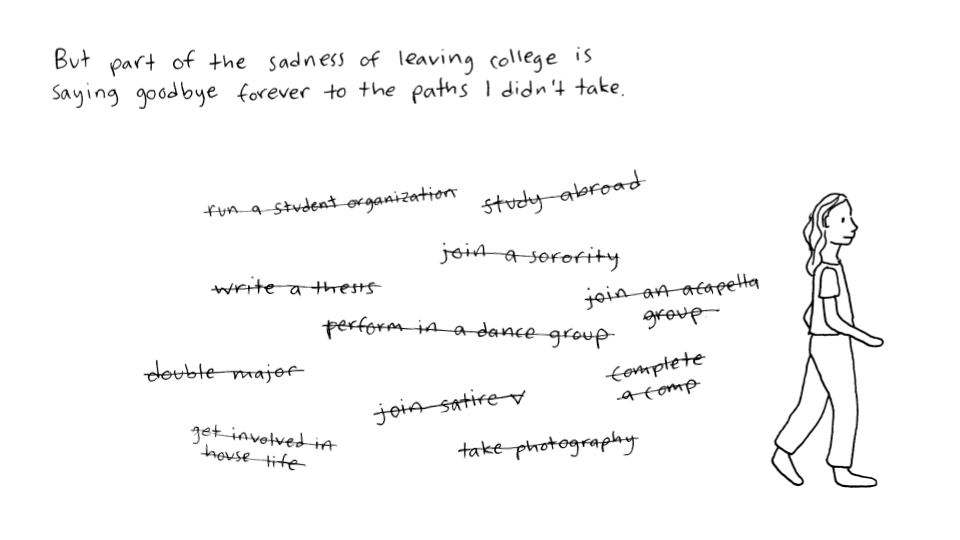 But part of the sadness of leaving college is
saying goodbye forever to the paths I didn't take.
run a student organization
study abroad
join a sorority
write a thesis
join an acapella
group
perform in a dance group
double major
complete
a comp
join satire v
get involved in
house life
take photography